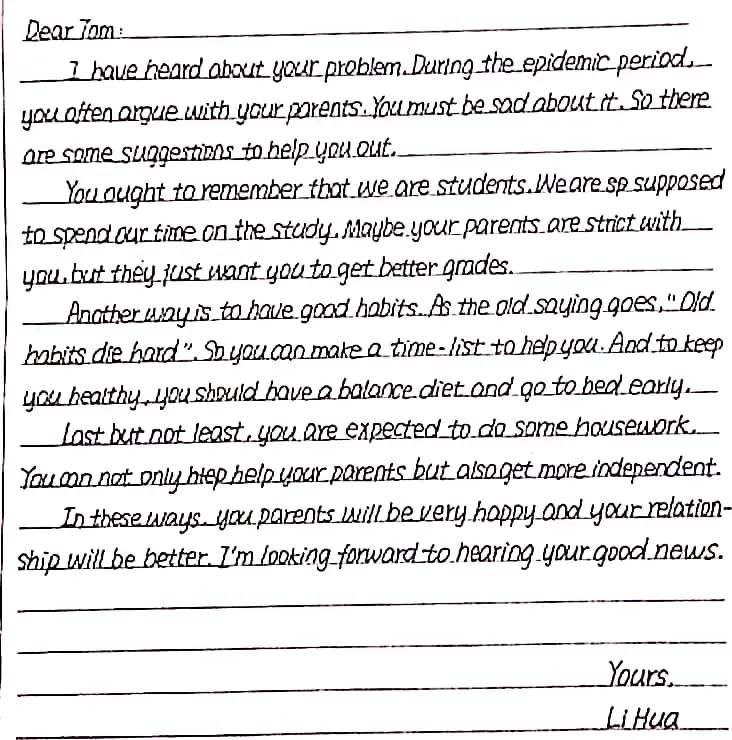 Dear Tom:
I have heard about your problem. During the epidemic period,
you often argue with your parents. You must be sad about it. So there
are some suggestions to help you out.
You ought to remember that we are students. We are sp supposed
to spend our time on the study. Maybe your parents are strict with
you, but they just want you to get better grades.
Another way is to have good habits. As the old saying goes, "Old
habits die hard". So you can make a time-list to help you. And to keep
you healthy, you should have a balance diet and go to bed early.
Last but not least, you are expected to do some housework.
You can not only htep help your parents but also get more independent.
In these ways, you parents will be very happy and your relation-
ship will be better. I'm looking forward to hearing your good news.
Yours,
Li Hua